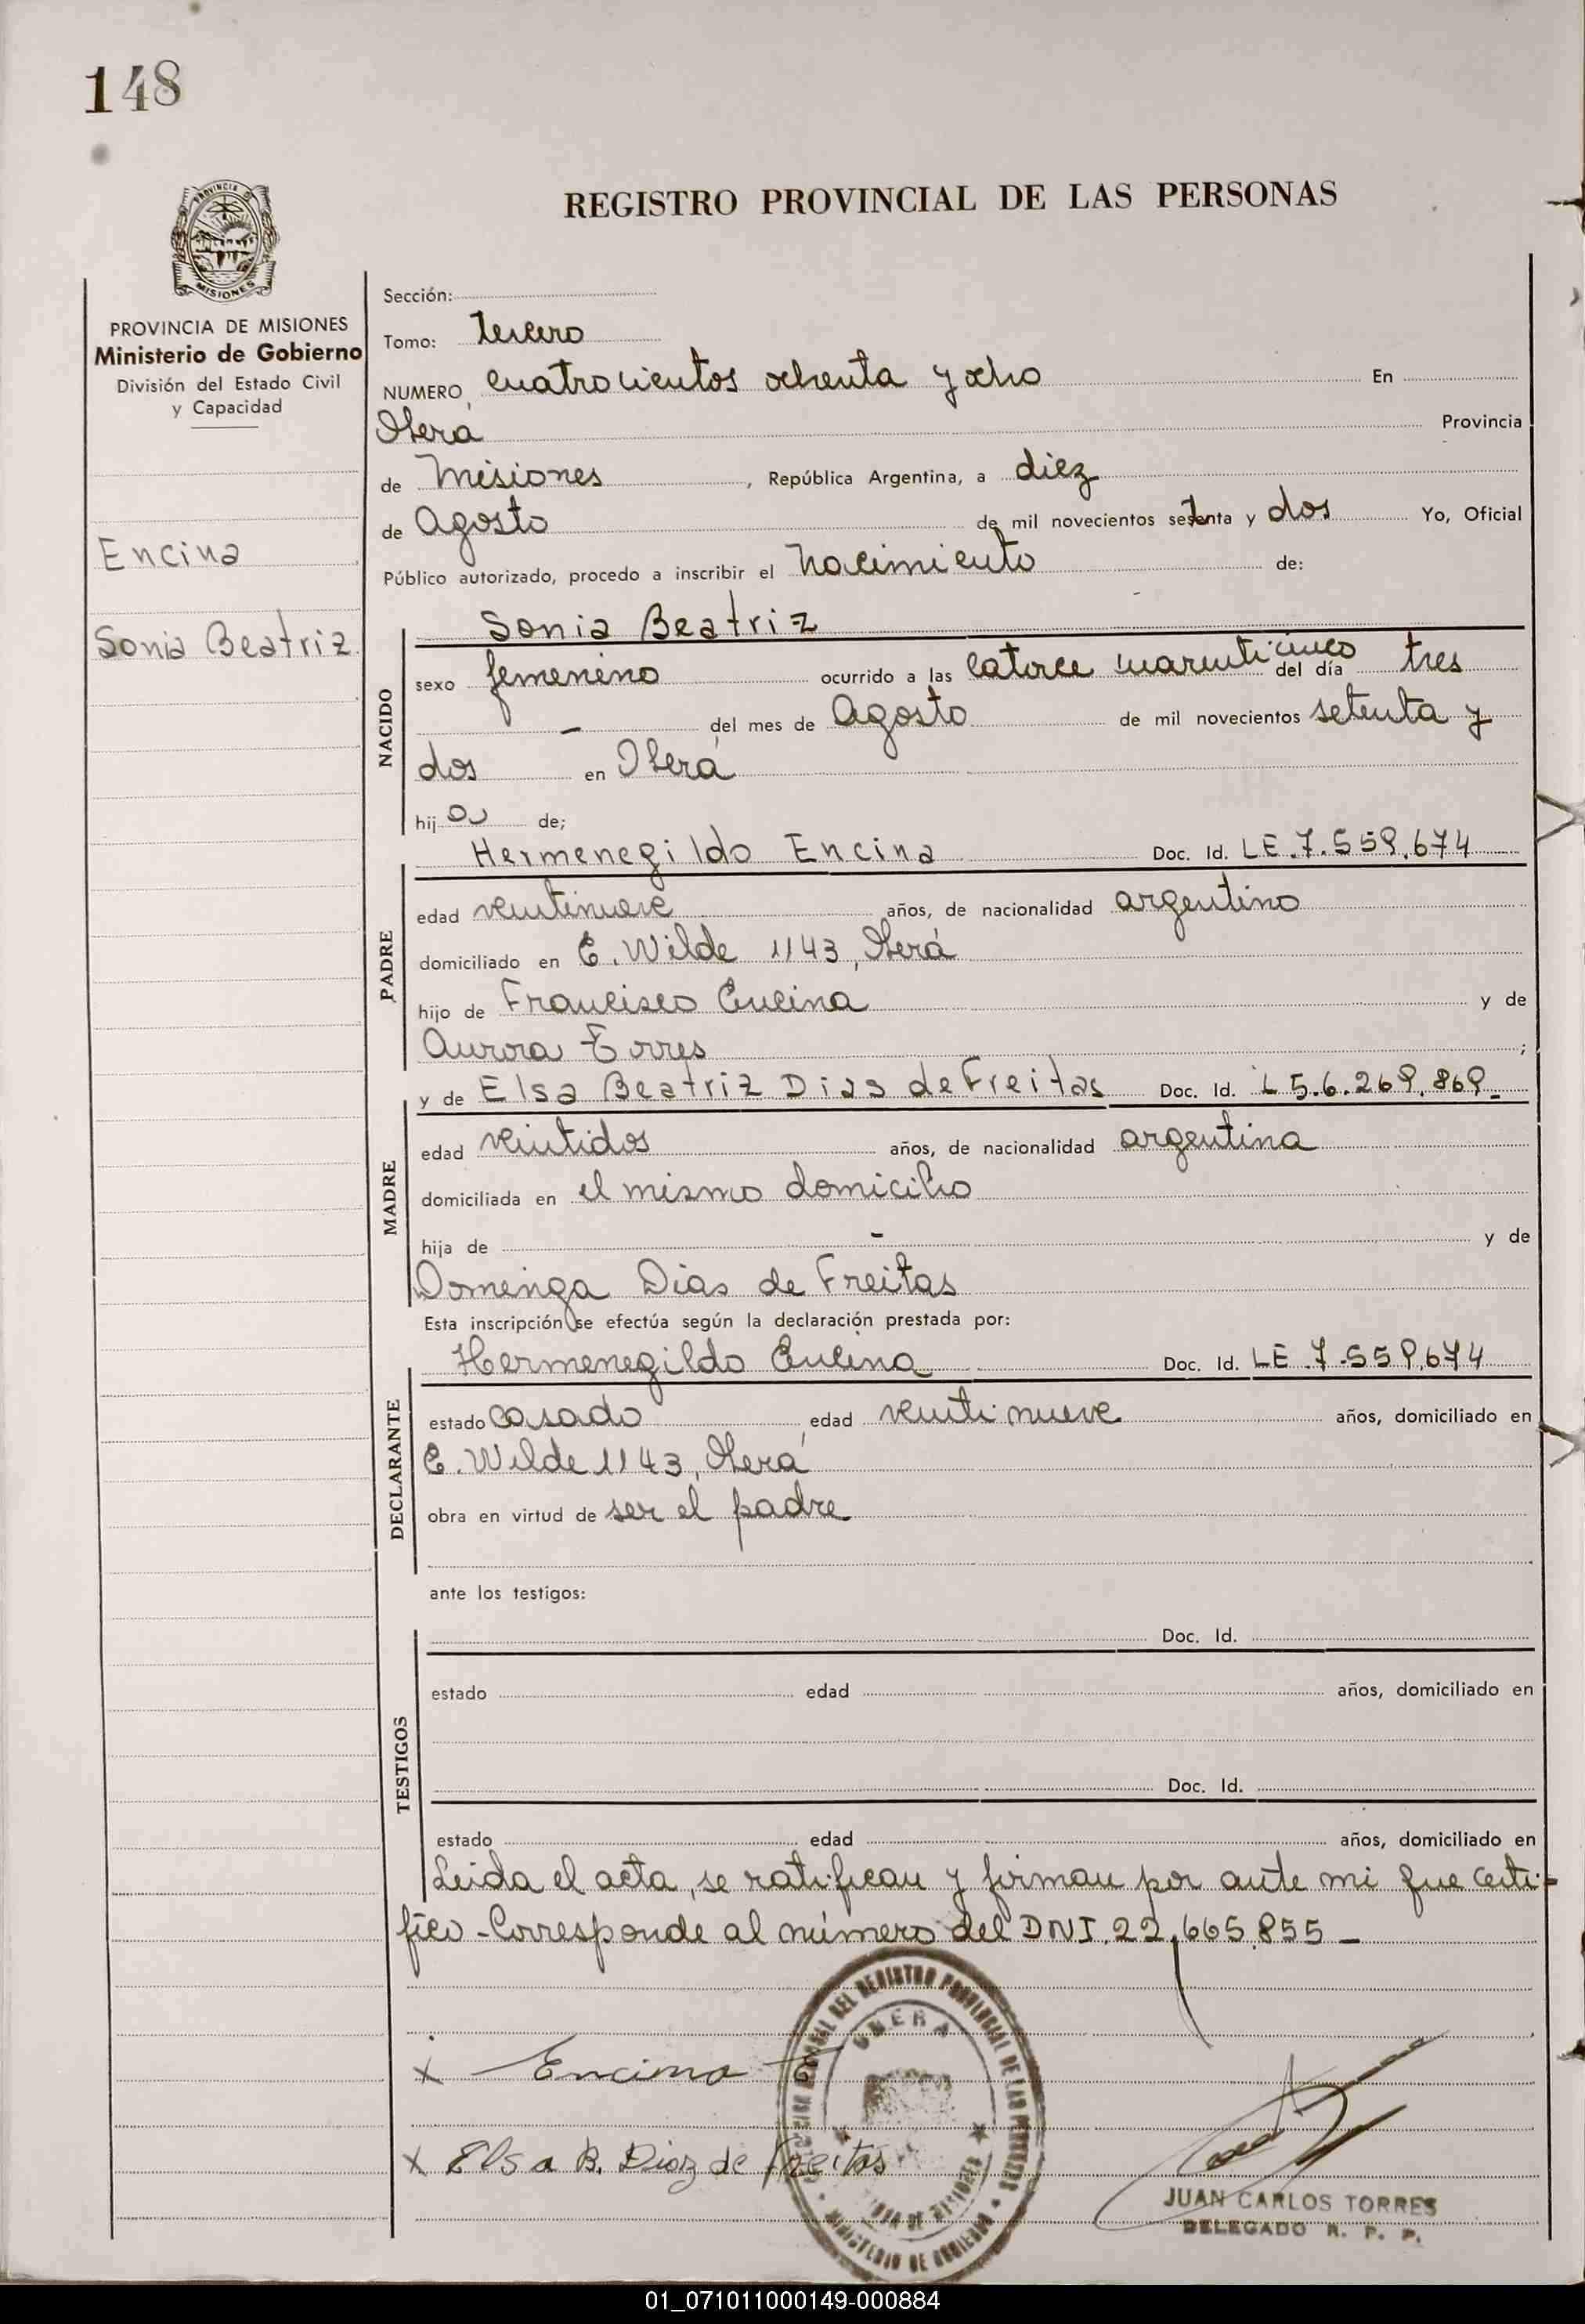 148
PROVINCIA DE
MISIONES
REGISTRO PROVINCIAL DE LAS PERSONAS
PROVINCIA DE MISIONES
Ministerio de Gobierno
División del Estado Civil
y Capacidad
Encina
Sonia Beatriz
Sección:
Tomo: Tercero
NUMERO cuatrocientos ochenta y ocho En
Oberá Provincia
de Misiones, República Argentina, a diez
de Agosto de mil novecientos setenta y dos Yo, Oficial
Público autorizado, procedo a inscribir el nacimiento de:
NACIDO
Sonia Beatriz
sexo femenino ocurrido a las catorce cuarenticinco del día tres
- del mes de Agosto de mil novecientos setenta y
dos en Oberá
hija de;
PADRE
Hermenegildo Encina Doc. Id. LE.7.559.674
edad veintinueve años, de nacionalidad argentino
domiciliado en E. Wilde 1143, Oberá
hijo de Francisco Encina y de
Aurora Torres;
MADRE
y de Elsa Beatriz Dias de Freitas Doc. Id. L5.6.269.869-
edad veintidos años, de nacionalidad argentina
domiciliada en el mismo domicilio
hija de - y de
Dominga Dias de Freitas
Esta inscripción se efectúa según la declaración prestada por:
DECLARANTE
Hermenegildo Encina Doc. Id. LE.7.559.674
estado casado edad veintinueve años, domiciliado en
E. Wilde 1143, Oberá
obra en virtud de ser el padre
ante los testigos:
TESTIGOS
Doc. Id.
estado edad años, domiciliado en
Doc. Id.
estado edad años, domiciliado en
Leida el acta, se ratifican y firman por ante mi que certi-
fico - Corresponde al número del DNI.22.665.855-
x Encina
x Elsa B. Diaz de Freitas
DEL REGISTRO PROVINCIAL DE LAS PERSONAS
OBERA
MINISTERIO DE GOBIERNO
JUAN CARLOS TORRES
DELEGADO R. P. P.
01_071011000149-000884